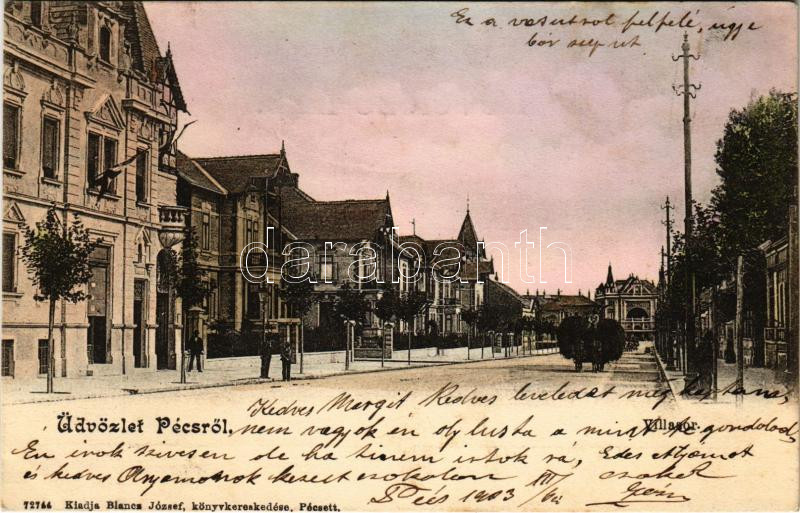 Ez a vasutról felfelé, ügye
bór szép ut
darabanth.com
Üdvözlet Pécsről.
Villasor.
Kedves Margit Kedves leveledet megkaptam,
nem vagyok én oly lusta a mint te gondolod,
Én irok szivesen de ha senem irtok rá, Édes Atyámat
és kedves Anyámnak kezeit csokolom csokol
Pécs 1903 III/
72744 Kiadja Blancz József, könyvkereskedése, Pécsett.